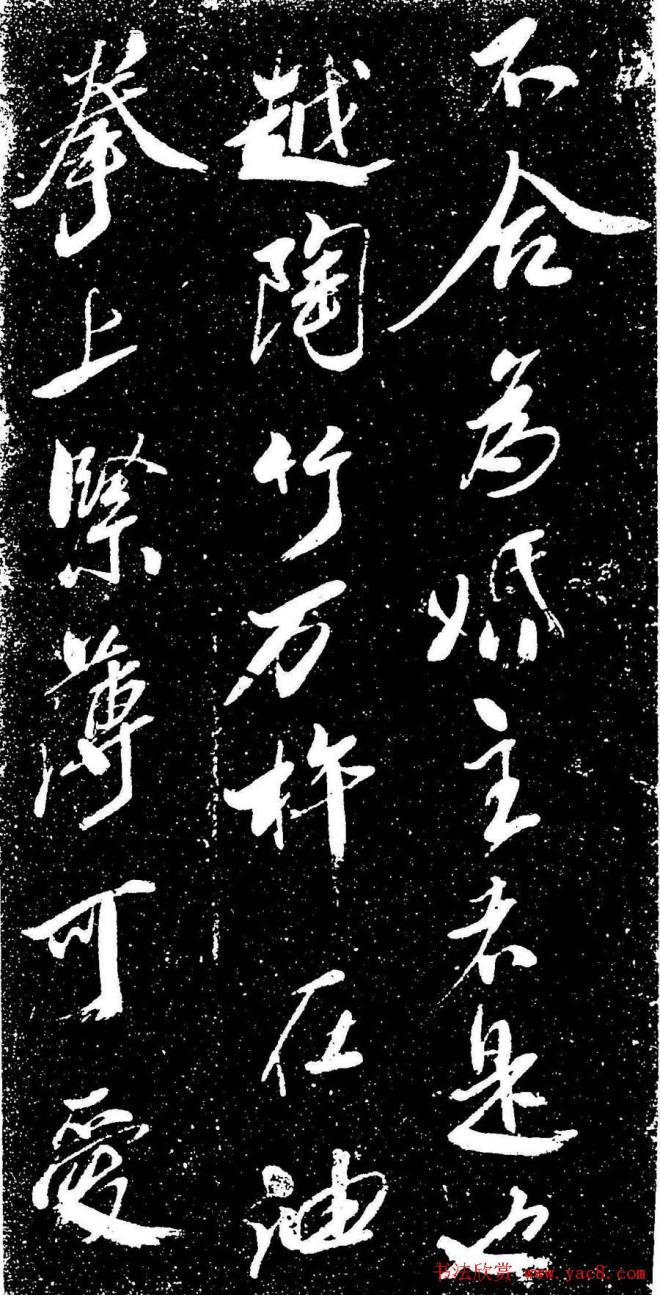 不合為婚主者是也
越陶竹万杵在油
拳上緊薄可愛
书法欣赏 www.yac8.com